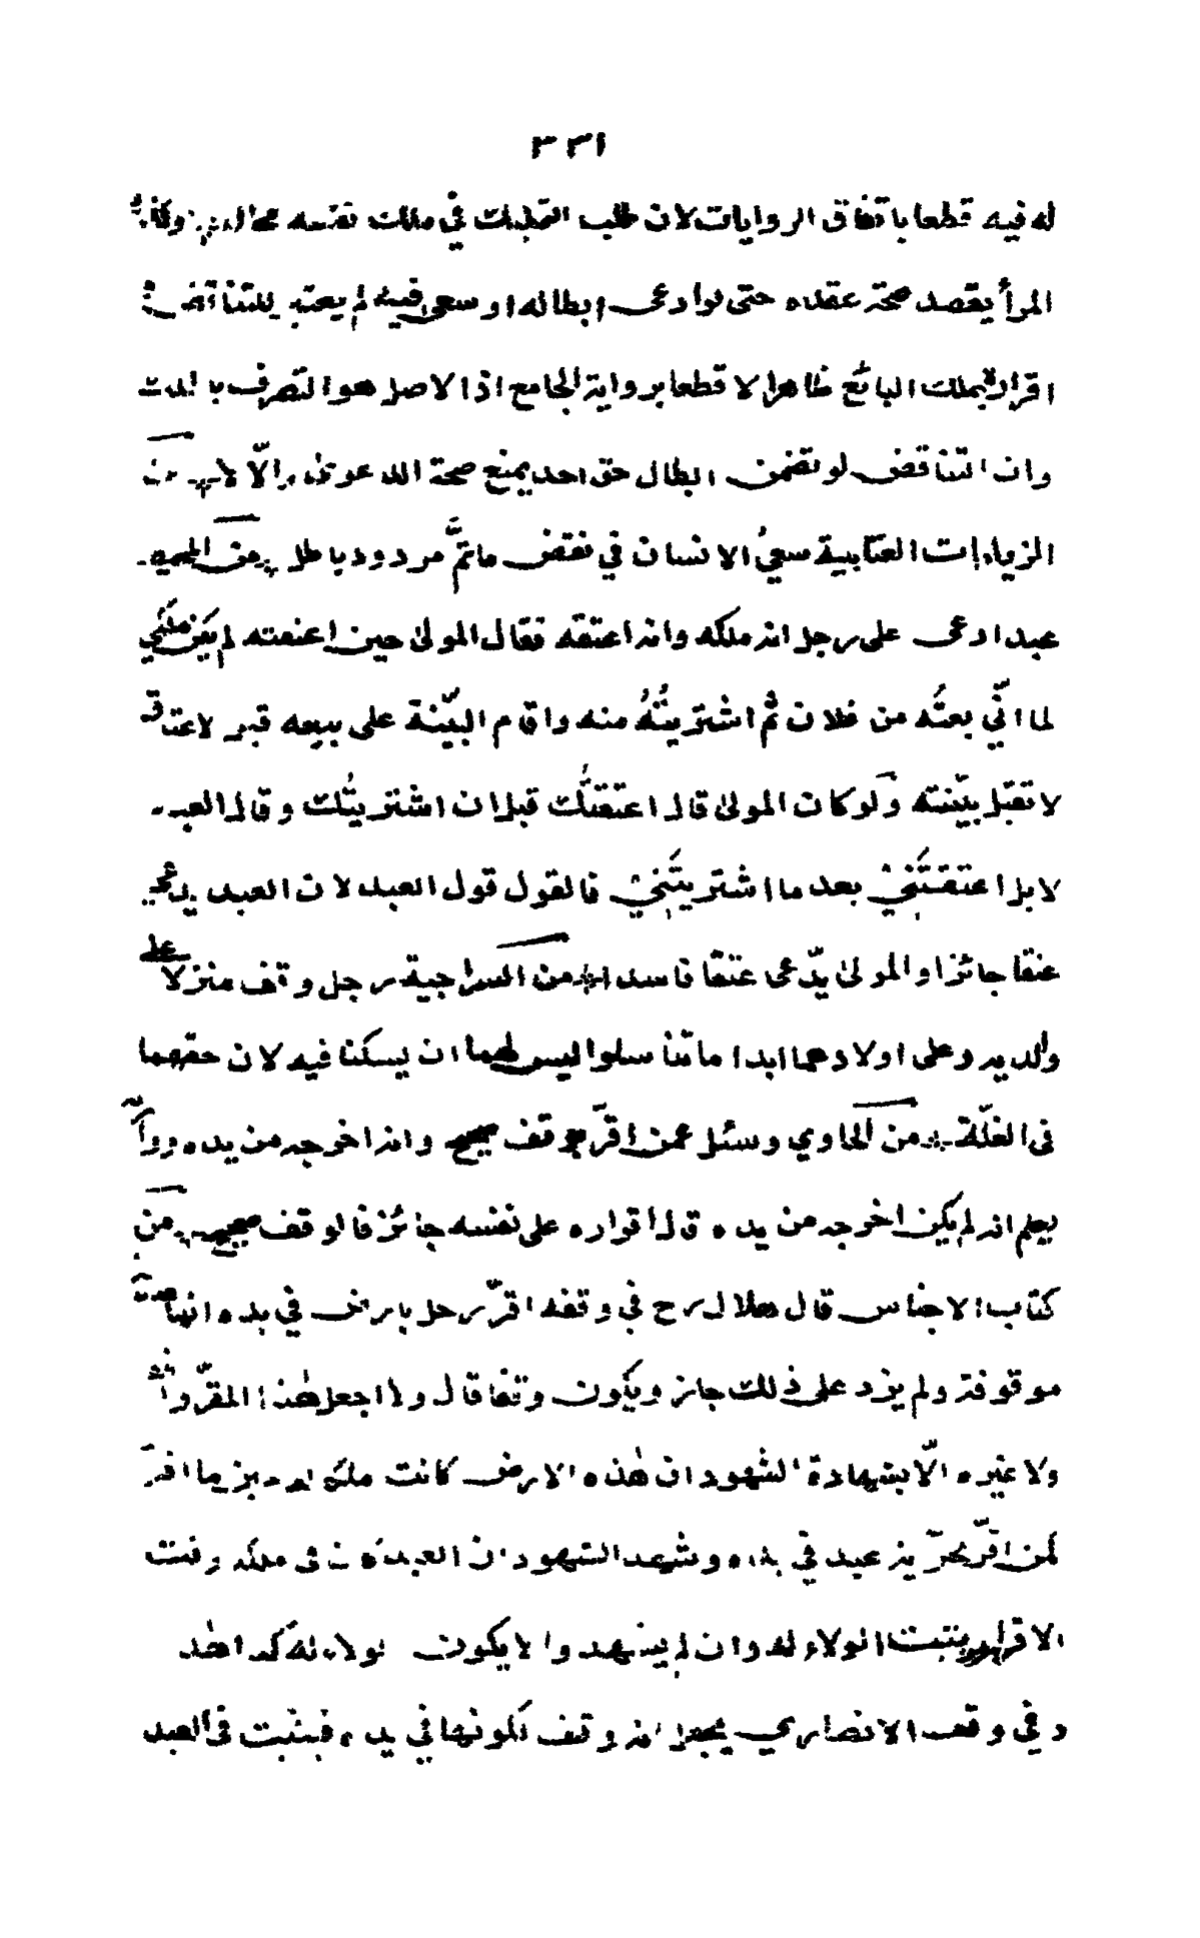 ٣٣١
له فيه قطعا باتفاق الروايات لان طلب التمليك في ملك نفسه محال
المرأ يقصد صحة عقده حتى لو ادعى ابطاله او سعى فيه لم يعتبر للتناقض
اقراره بملك البائع ظاهرا لا قطعا برواية الجامع اذ الاصل هو التصرف
وان التناقض لو تضمن ابطال حق احد يمنع صحة الدعوى والّا لا من
الزيادات العتابية سعيُ الانسان في نقض ما تمَّ مردود باطل من المحيط
عبد ادعى على رجل انه ملكه وانه اعتقه فقال المولى حين اعتقته لم يكن ملكي
لما انّي بعتُه من فلان ثم اشتريتُهُ منه واقام البيّنة على بيعه قبل
لا تقبل بيّنته ولو كان المولى قال اعتقتُك قبل ان اشتريتُك وقال العبد
لا بل اعتقتَني بعد ما اشتريتَني فالقول قول العبد لان العبد يدعي
عتقا جائزا والمولى يدّعى عتقا فاسدا من السراجية رجل وقف منزلا على
والديه وعلى اولادهما ابدا ما تناسلوا ليس لهما ان يسكنا فيه لان حقهما
فى الغلّة من الحاوي وسئل عمن اقرّ بوقف صحيح وانه اخرجه من يده
يعلم انه لم يكن اخرجه من يده قال اقراره على نفسه جائز فالوقف صحيح من
كتاب الاجناس قال هلال رح في وقفه اقرّ رجل بارض في يده انها صدقة
موقوفة ولم يزد على ذلك جاز ويكون وقفا قال ولا اجعل هذا المقرّ
ولا غيره الّا بشهادة الشهود ان هذه الارض كانت ملكه
كمن اقرّ بحرّية عبد في يده وشهد الشهود ان العبد كان فى ملكه وقت
الاقرار يثبت الولاء له وان لم يشهدوا لا يكون الولاء له
وفي وقف الانصاري يجعل انه وقف لكونها في يده فيثبت فى العبد